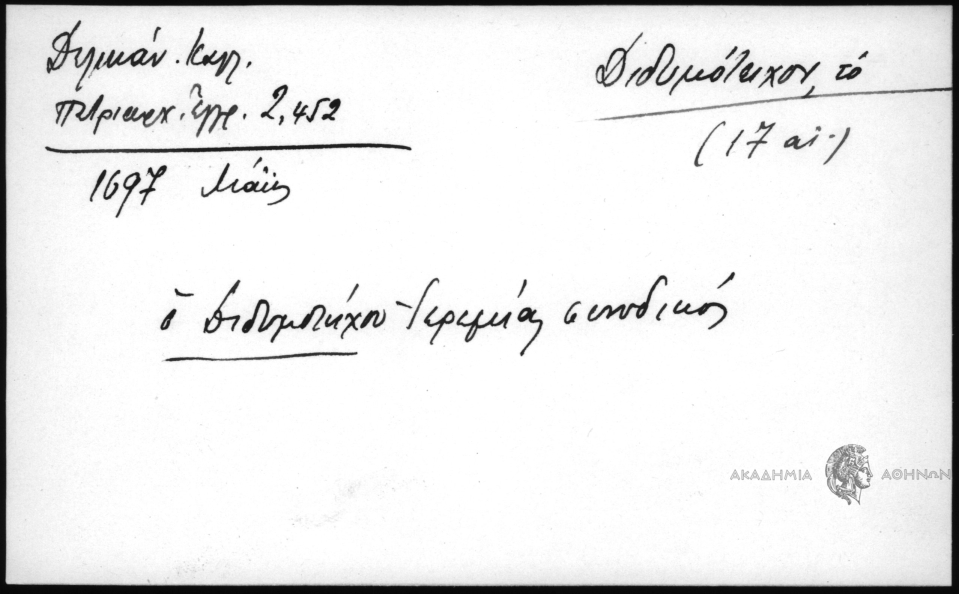 Δελικάν. Καλλ.
Πατριαρχ. Ἔγγρ. 2,452
Διδυμότειχον, τό
(17 αἰ.)
1697 Μάϊος
ὁ Διδυμοτείχου Ἱερεμίας συνοδικός
ΑΚΑΔΗΜΙΑ ΑΘΗΝΩΝ